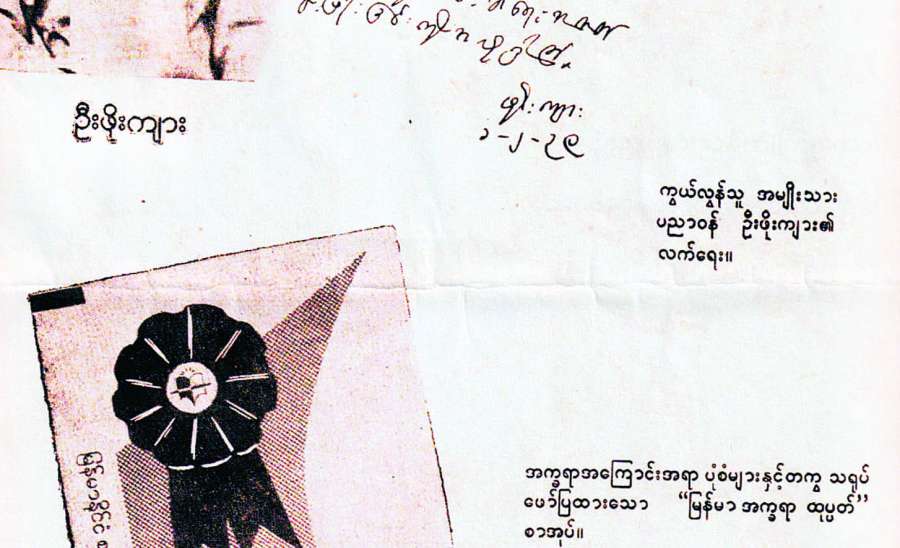 ဦးဖိုးကျား
ဖိုးကျား
၁-၂-၃၉
ကွယ်လွန်သူ အမျိုးသား
ပညာဝန် ဦးဖိုးကျား၏
လက်ရေး။
မြန်မာနိုင်ငံ
အက္ခရာအကြောင်းအရာ ပုံစံများနှင့်တကွ သရုပ်
ဖော်ပြထားသော “မြန်မာအက္ခရာ ထုပ္ပတ်”
စာအုပ်။